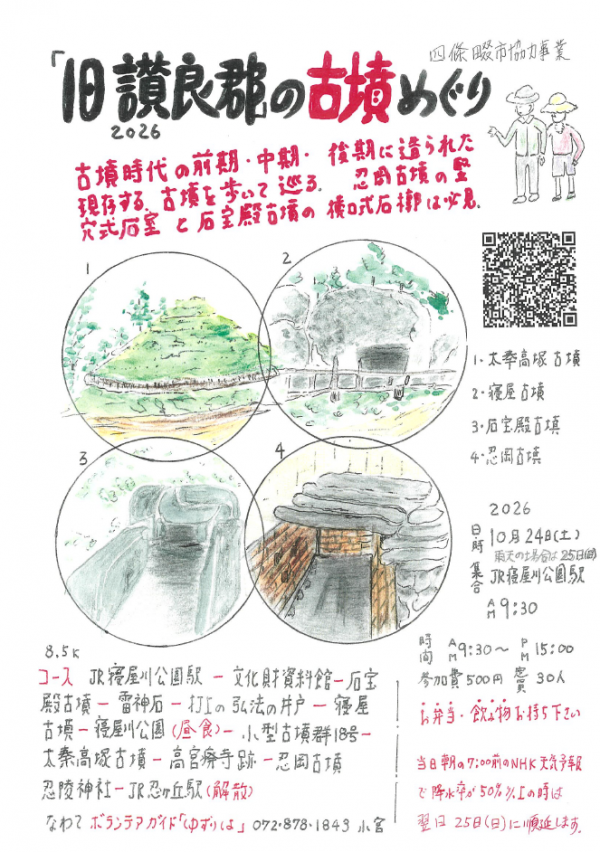 四條畷市協力事業
「旧讃良郡」の古墳めぐり
2026
古墳時代の前期・中期・後期に造られた
現存する古墳を歩いて巡る。忍岡古墳の竪
穴式石室と石宝殿古墳の横口式石槨は必見。
1
2
3
4
1・太秦高塚古墳
2・寝屋古墳
3・石宝殿古墳
4・忍岡古墳
2026
日時 10月24日(土)
雨天の場合は25日(日)
集合 JR寝屋川公園駅
AM 9:30
8.5K
コース JR寝屋川公園駅ー文化財資料館ー石宝
殿古墳ー雷神石ー打上の弘法の井戸ー寝屋
古墳ー寝屋川公園(昼食)ー小型古墳群18号ー
太秦高塚古墳ー高宮廃寺跡ー忍岡古墳
忍陵神社ーJR忍ヶ丘駅(解散)
なわて ボランテアガイド「ゆずりは」 072-878-1849 小宮
時間 AM9:30～PM15:00
参加費500円 定員30人
お弁当・飲み物お持ち下さい
当日朝の7:00前のNHK天気予報
で降水率が50%以上の時は
翌日25日(日)に順延します。